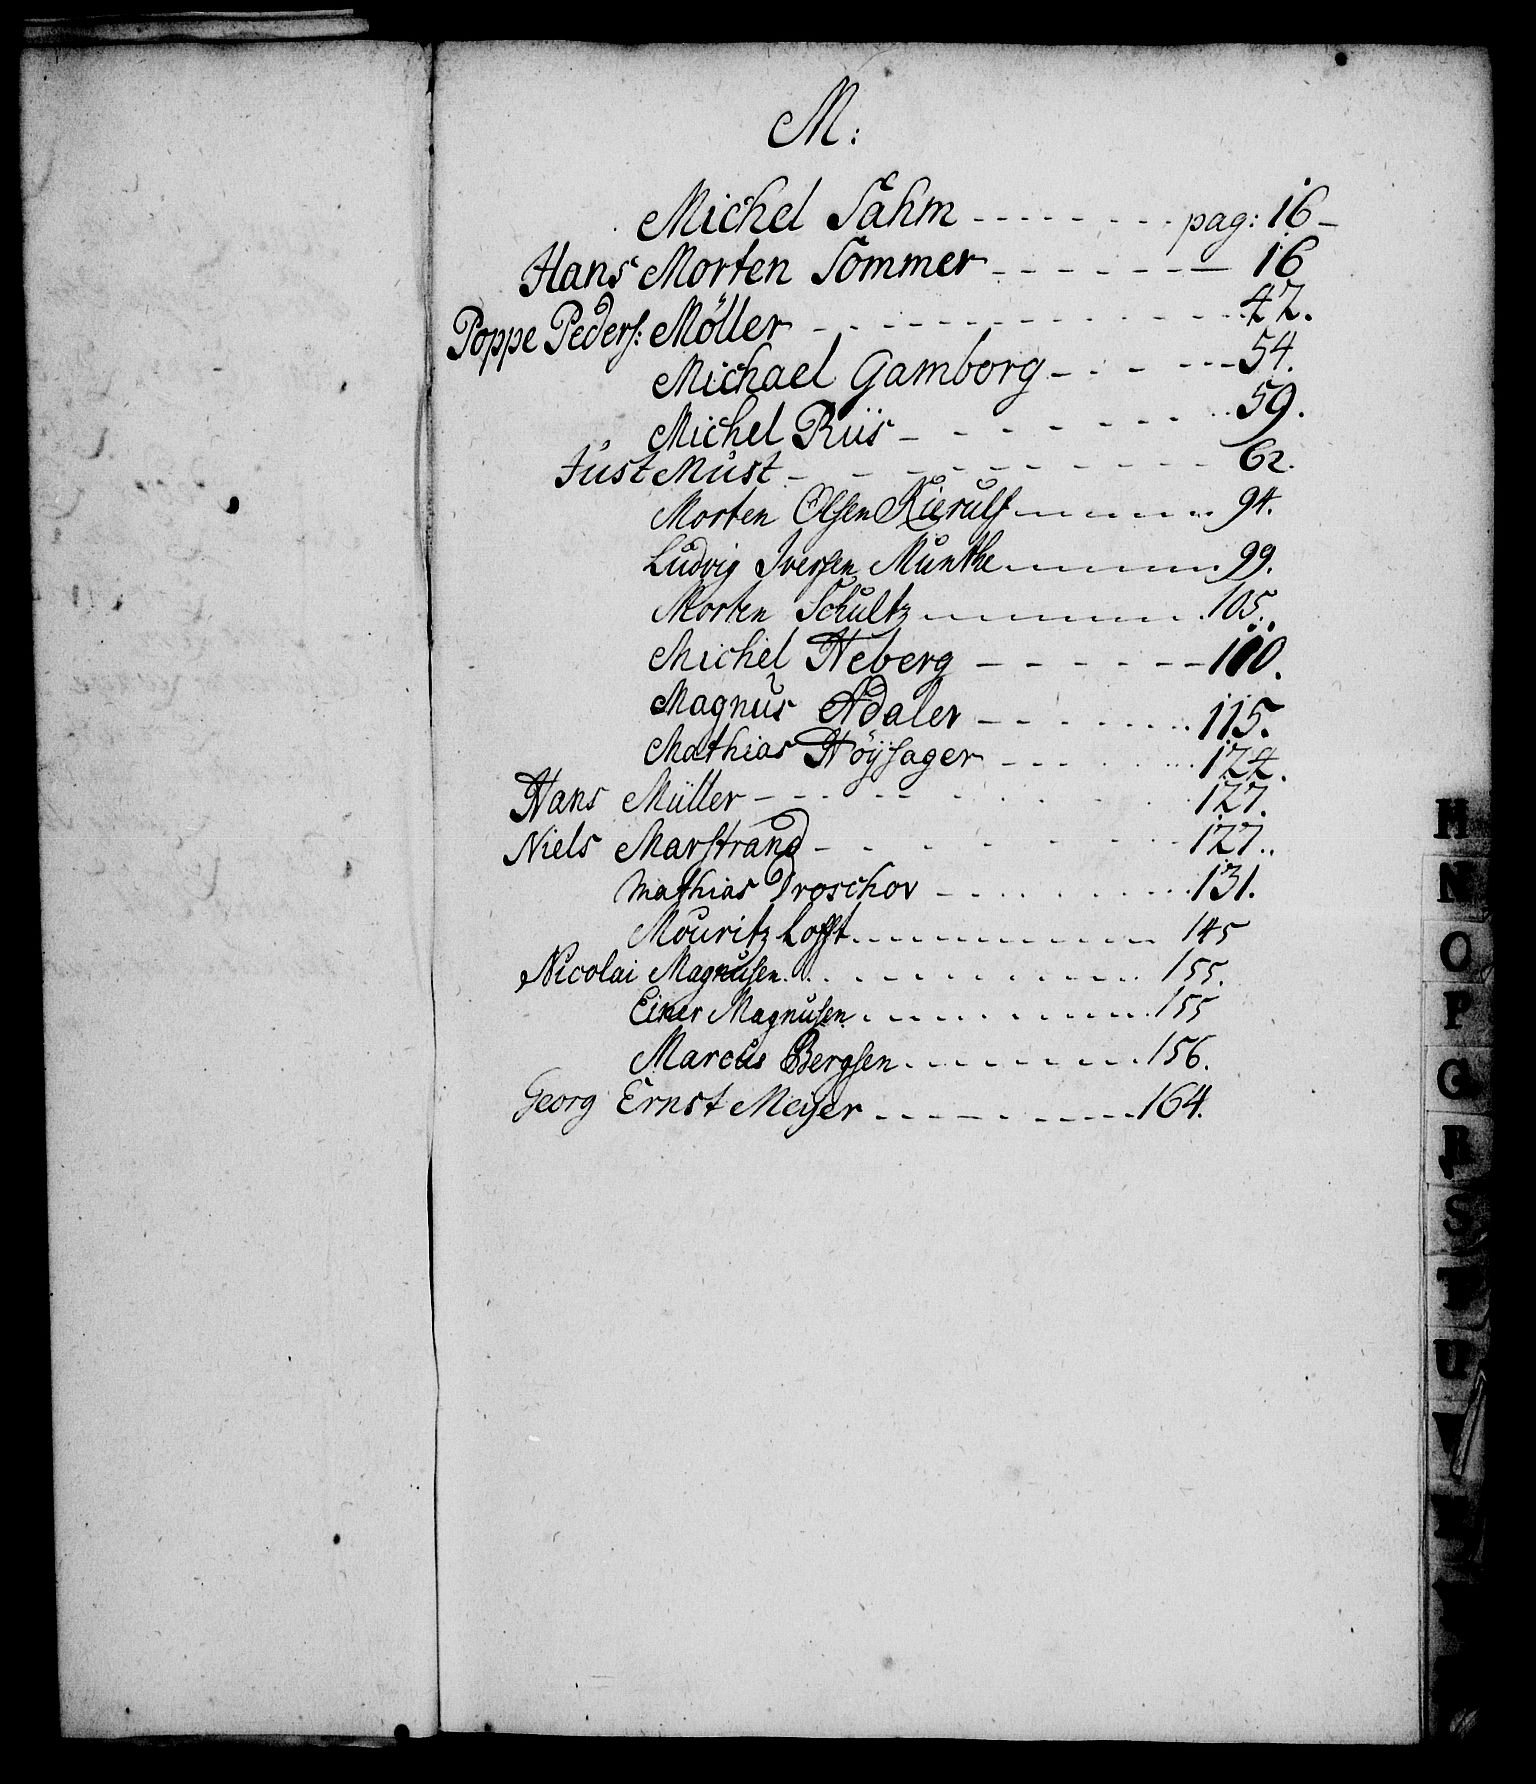 M:
Michel Sahm - - - - - - - - pag: 16 -
Hans Morten Sommer - - - - - - - 16
Poppe Peders: Møller - - - - - - - - - - - 42.
Michael Gamborg - - - - - - 54.
Michel Riis - - - - - - - 59.
Just Must - - - - - - - - - - 62.
Morten Olsen Kierulf - - - - - 94.
Ludvig Iversen Munthe - - - - - 99.
Morten Schultz - - - - - - 105.
Michel Heberg - - - - - - 110.
Magnus Adaler - - - - - - 115.
Mathias Höysager - - - - - 124.
Hans Müller - - - - - - - - 127.
Niels Marstrand - - - - - - - 127.
Mathias Droschov - - - - - - 131.
Mouritz Lofft - - - - - - - - 145
Nicolai Magnusen - - - - - - - - 155.
Einer Magnusen - - - - - - - 155
Marcus Bergsen - - - - - - - 156.
Georg Ernst Meyer - - - - - - - 164.
M
N
O
P
Q
R
S
T
U
V